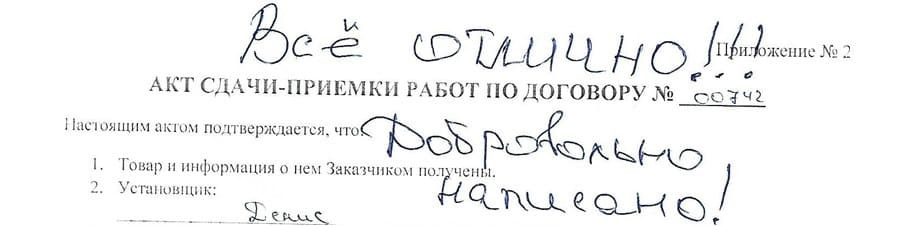 Всё отлично!!!
Приложение № 2
АКТ СДАЧИ-ПРИЕМКИ РАБОТ ПО ДОГОВОРУ № 00742
Настоящим актом подтверждается, что:
Добровольно
1. Товар и информация о нем Заказчиком получены.
написано!
2. Установщик:
Денис